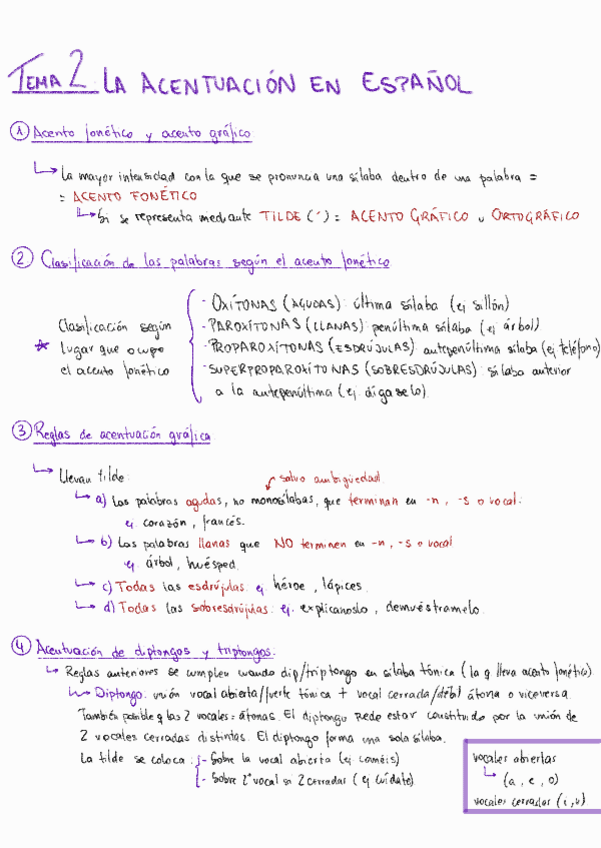 TEMA 2: LA ACENTUACIÓN EN ESPAÑOL
① Acento fonético y acento gráfico
↳ La mayor intensidad con la que se pronuncia una sílaba dentro de una palabra =
= ACENTO FONÉTICO
↳ Si se representa mediante TILDE (´) = ACENTO GRÁFICO u ORTOGRÁFICO
② Clasificación de las palabras según el acento fonético
* Clasificación según lugar que ocupa el acento fonético
- OXÍTONAS (AGUDAS): última sílaba (ej sillón)
- PAROXÍTONAS (LLANAS): penúltima sílaba (ej árbol)
- PROPAROXÍTONAS (ESDRÚJULAS): antepenúltima sílaba (ej teléfono)
- SUPERPROPAROXÍTONAS (SOBRESDRÚJULAS): sílaba anterior
a la antepenúltima (ej. dígaselo).
③ Reglas de acentuación gráfica
↳ Llevan tilde:
salvo ambigüedad
↳ a) Las palabras agudas, no monosílabas, que terminan en -n, -s o vocal:
ej. corazón, francés.
↳ b) Las palabras llanas que NO terminen en -n, -s o vocal
ej. árbol, huésped.
↳ c) Todas las esdrújulas: ej. héroe, lápices.
↳ d) Todas las sobresdrújulas: ej. explícanoslo, demuéstramelo.
④ Acentuación de diptongos y triptongos:
↳ Reglas anteriores se cumplen cuando dip/triptongo en sílaba tónica (la q lleva acento fonético).
↳ Diptongo: unión vocal abierta/fuerte tónica + vocal cerrada/débil átona o viceversa.
También posible q las 2 vocales = átonas. El diptongo puede estar constituido por la unión de
2 vocales cerradas distintas. El diptongo forma una sola sílaba.
La tilde se coloca: - Sobre la vocal abierta (ej coméis)
- Sobre 2ª vocal si 2 cerradas (ej cuídate)
vocales abiertas
↳ (a, e, o)
vocales cerradas (i, u)